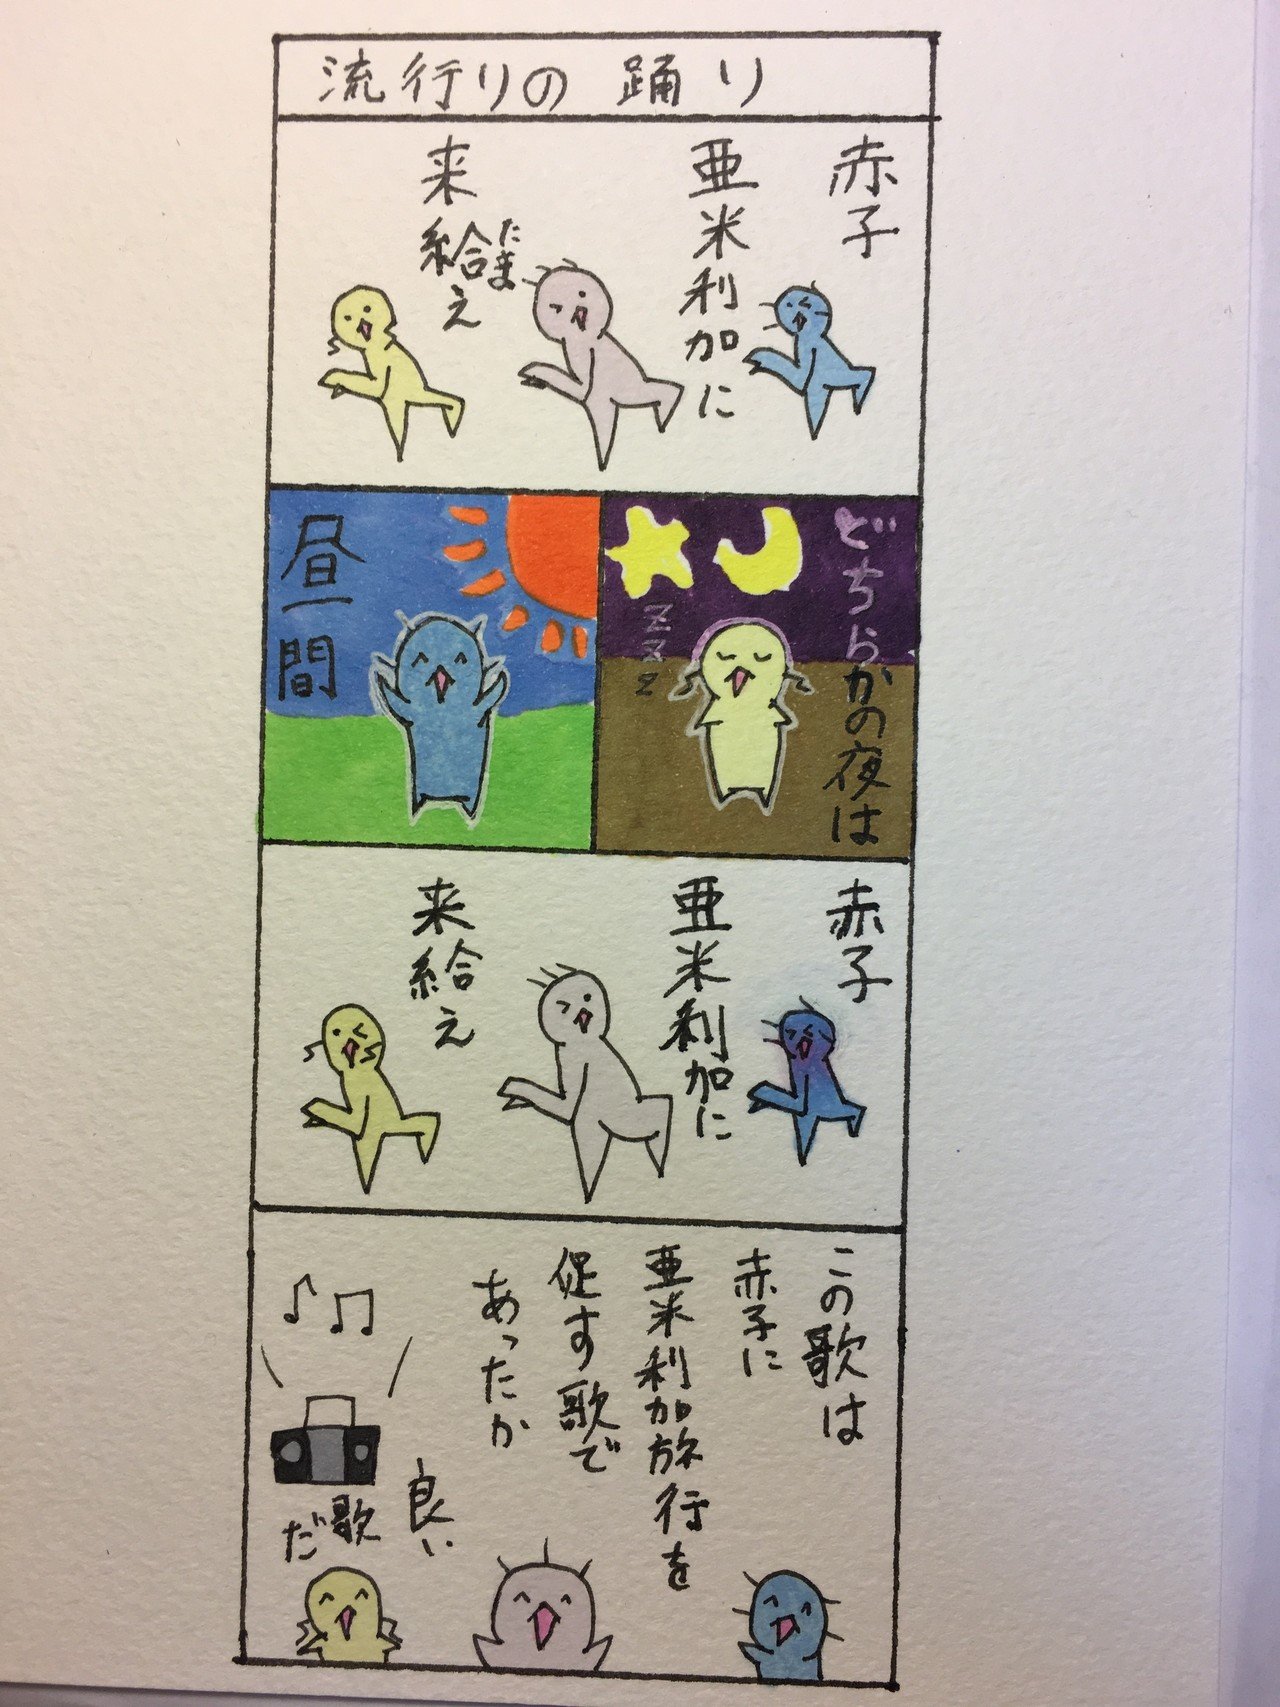 流行りの踊り
赤子
亜米利加に
来給え
たま
どちらかの夜は
zzz
昼間
赤子
亜米利加に
来給え
この歌は
赤子に
亜米利加旅行を
促す歌で
あったか
良い
歌
だ